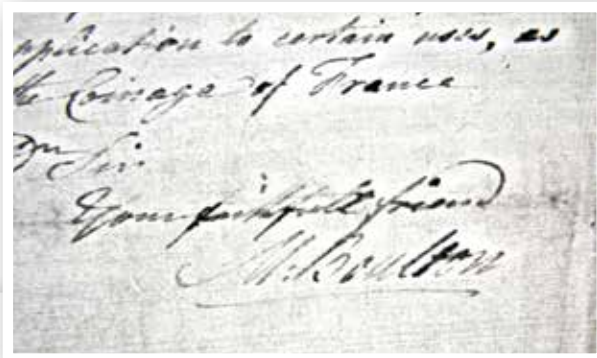 application to certain uses, as
the Coinage of France
Sir
Your faithfull friend
M: Boulton